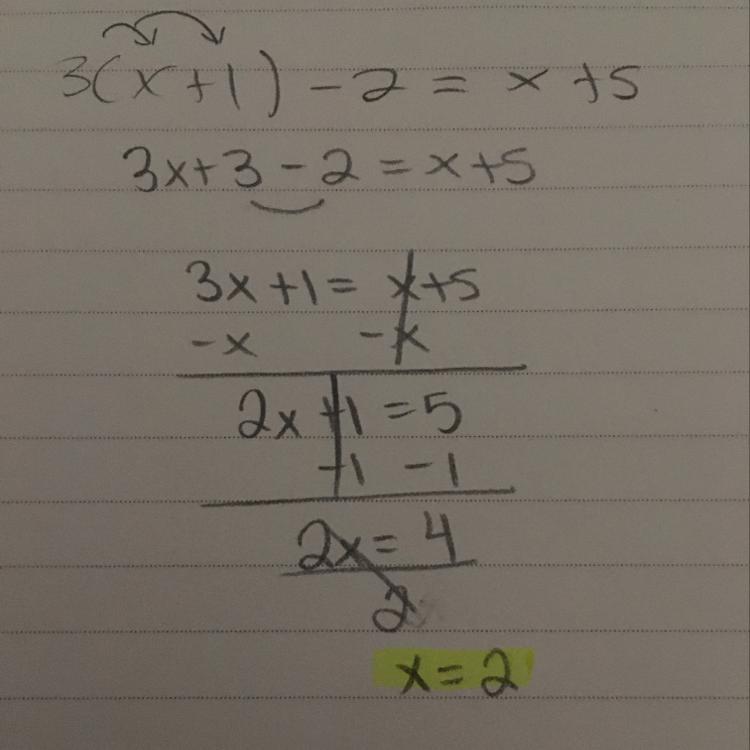 3(x+1)-2=x+5
3x+3-2=x+5
3x+1=x+5
-x -x
2x+1=5
-1 -1
2x=4
2
x=2